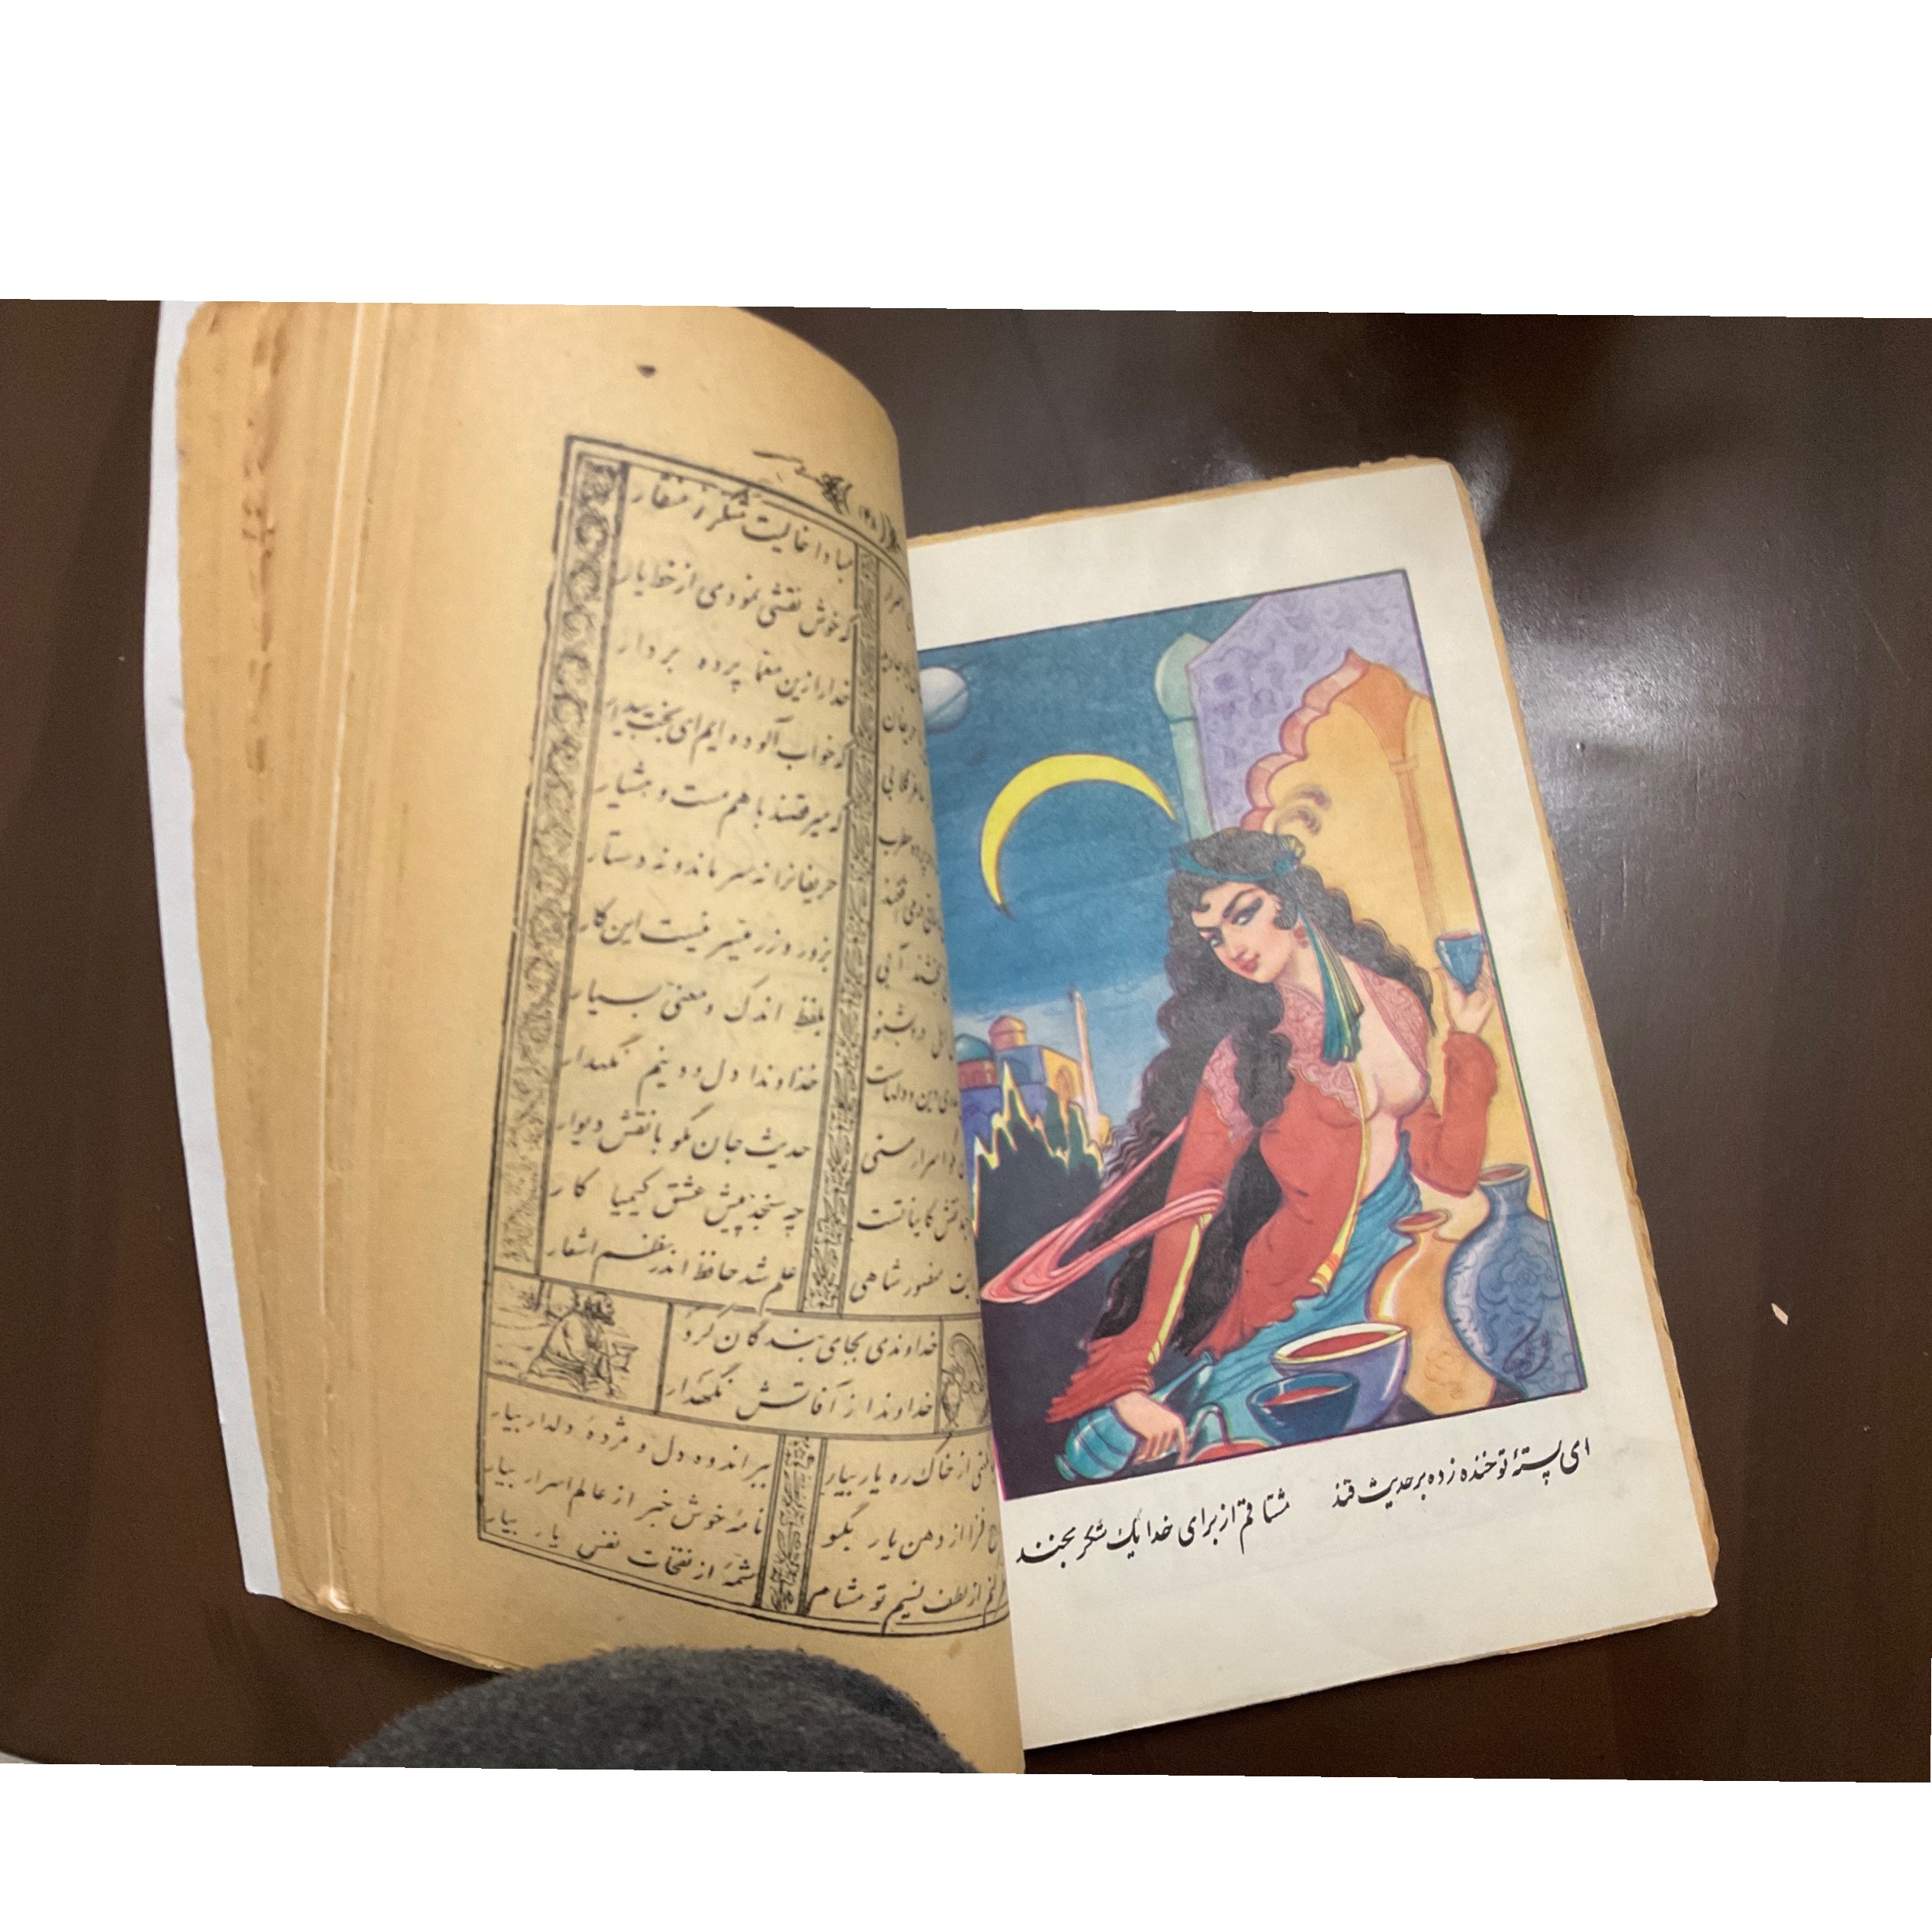 مبادا خالیت شکر ز منقار
که خوش نقشی نمودی از خط یار
حریفان خدا را زین معما پرده بردار
که خواب آلوده ایم ای بخت بیدار
مطرب که میرقصند با هم مست و هشیار
حریفانرا نه سر ماند و نه دستار
بزور و زر میسر نیست این کار
بشنو بلفظ اندک و معنی بسیار
خداوندا دل و دینم نگهدار
اسرار مستی حدیث جان مگو با نقش دیوار
چه سنجد پیش عشق کیمیا کار
منصور شاهی علم شد حافظ اندر نظم اشعار
خداوندی بجای بندگان کرد
خداوندا ز آفاتش نگهدار
از خاک ره یار بیار ببر اندوه دل و مژدهٔ دلدار بیار
فزا از دهن یار بگو نامهٔ خوش خبر از عالم اسرار بیار
از لطف نسیم تو مشام شمهٔ از نفحات نفس یار بیار
ای پستهٔ تو خنده زده بر حدیث قند
مشتاقم از برای خدا یک شکر بخند